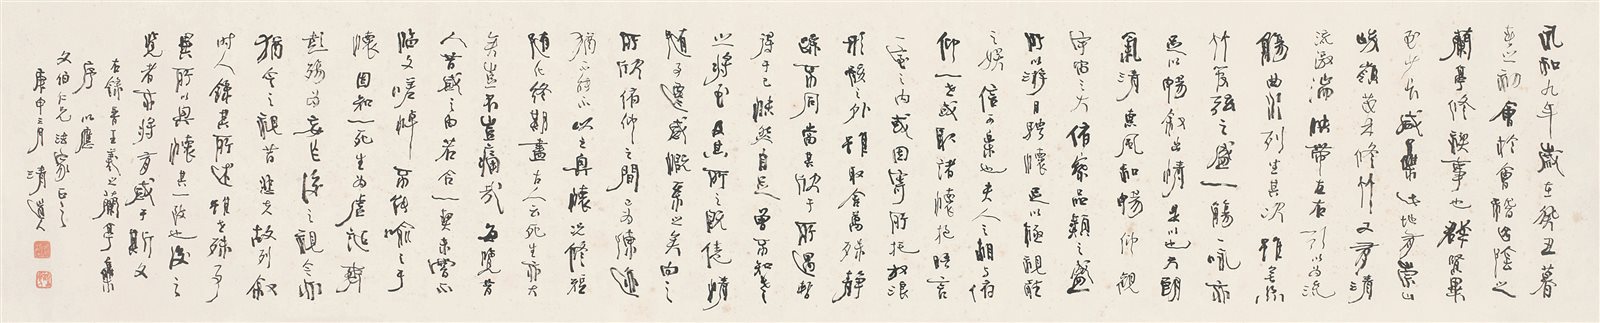 永和九年歲在癸丑暮
春之初會於會稽山陰之
蘭亭修禊事也群賢畢
至少長咸集此地有崇山
峻嶺茂林修竹又有清
流激湍映帶左右引以為流
觴曲水列坐其次雖無絲
竹管弦之盛一觴一詠亦
足以暢敘幽情是日也天朗
氣清惠風和暢仰觀
宇宙之大俯察品類之盛
所以游目騁懷足以極視聽
之娛信可樂也夫人之相與俯
仰一世或取諸懷抱晤言
一室之內或因寄所託放浪
形骸之外雖取舍萬殊靜
躁不同當其欣于所遇暫
得于己快然自足曾不知老
之將至及其所之既倦情
隨事遷感慨系之矣向之
所欣俯仰之間已為陳迹
猶不能不以之興懷況修短
隨化終期盡古人云死生亦大
矣豈不豈痛哉每覽昔
人昔感之由若合一契未嘗不
臨文嗟悼不能喻之于
懷固知一死生為虛誕齊
彭殤為妄作後之視今亦
猶今之視昔悲夫故列敘
時人錄其所述雖世殊事
異所以興懷其一致也後之
覽者亦將有感于斯文
右錄晉王羲之蘭亭集
序 以應
文伯仁兄法家正之
庚申三月 清道人